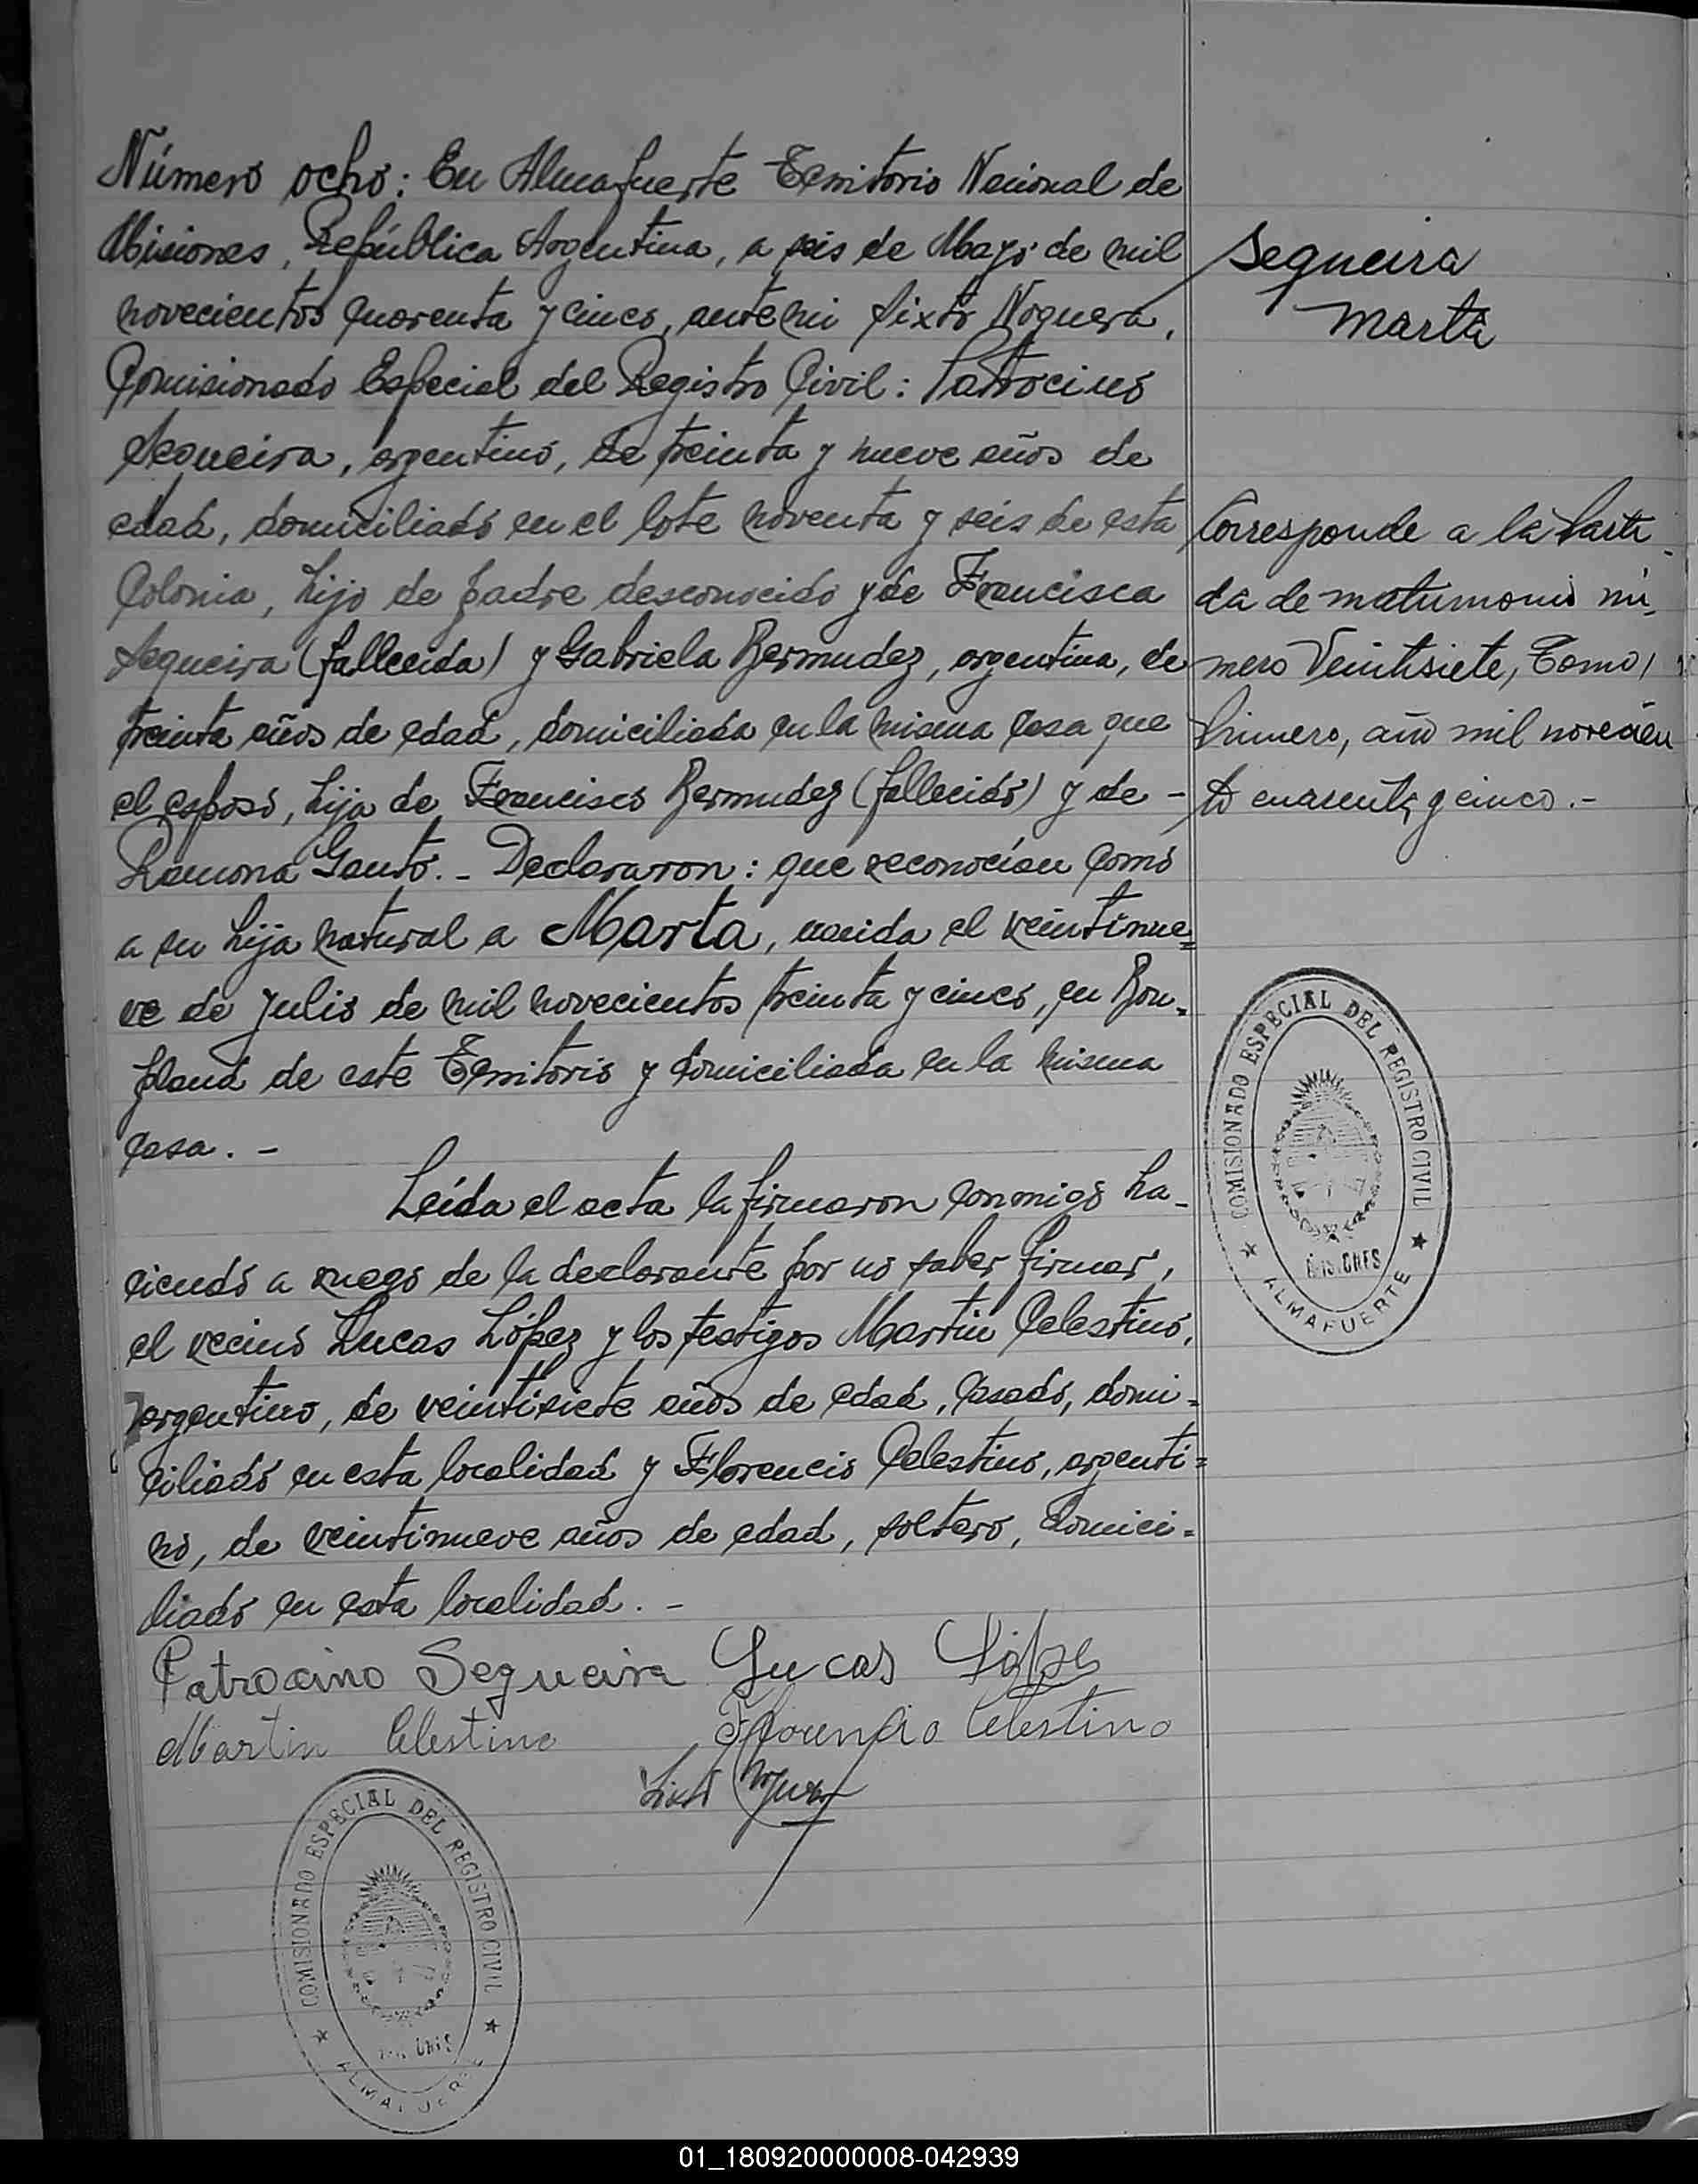 Número ocho: En Almafuerte Territorio Nacional de
Misiones, República Argentina, a seis de Mayo de mil
novecientos cuarenta y cinco, ante mi Sixto Noguera,
Comisionado Especial del Registro Civil: Patrocino
Sequeira, argentino, de treinta y nueve años de
edad, domiciliado en el lote noventa y seis de esta
Colonia, hijo de padre desconocido y de Francisca
Sequeira (fallecida) y Gabriela Bermudez, argentina, de
treinta años de edad, domiciliada en la misma casa que
el esposo, hija de Francisco Bermudez (fallecido) y de -
Ramona Gauto. - Declararon: que reconocían como
a su hija natural a Marta, nacida el veintinue=
ve de Julio de mil novecientos treinta y cinco, en Bon-
pland de este Territorio y domiciliada en la misma
casa. -
Leída el acta la firmaron conmigo ha-
ciendo a ruego de la declarante por no saber firmar,
el vecino Lucas López y los testigos Martin Celestino,
argentino, de veintisiete años de edad, casado, domi-
ciliado en esta localidad y Florencio Celestino, argenti=
no, de veintinueve años de edad, soltero, domici-
liado en esta localidad. -
Patrocino Sequeira Lucas Lópes
Martin Celestino Florencio Celestino
Sixto Noguera
Sequeira
Marta
Corresponde a la Parti-
da de matrimonio nú-
mero Veintisiete, Tomo
Primero, año mil novecien
to cuarenta y cinco.-
COMISIONADO ESPECIAL DEL REGISTRO CIVIL
MISIONES
★ ALMAFUERTE ★
COMISIONADO ESPECIAL DEL REGISTRO CIVIL
MISIONES
★ ALMAFUERTE ★
01_180920000008-042939